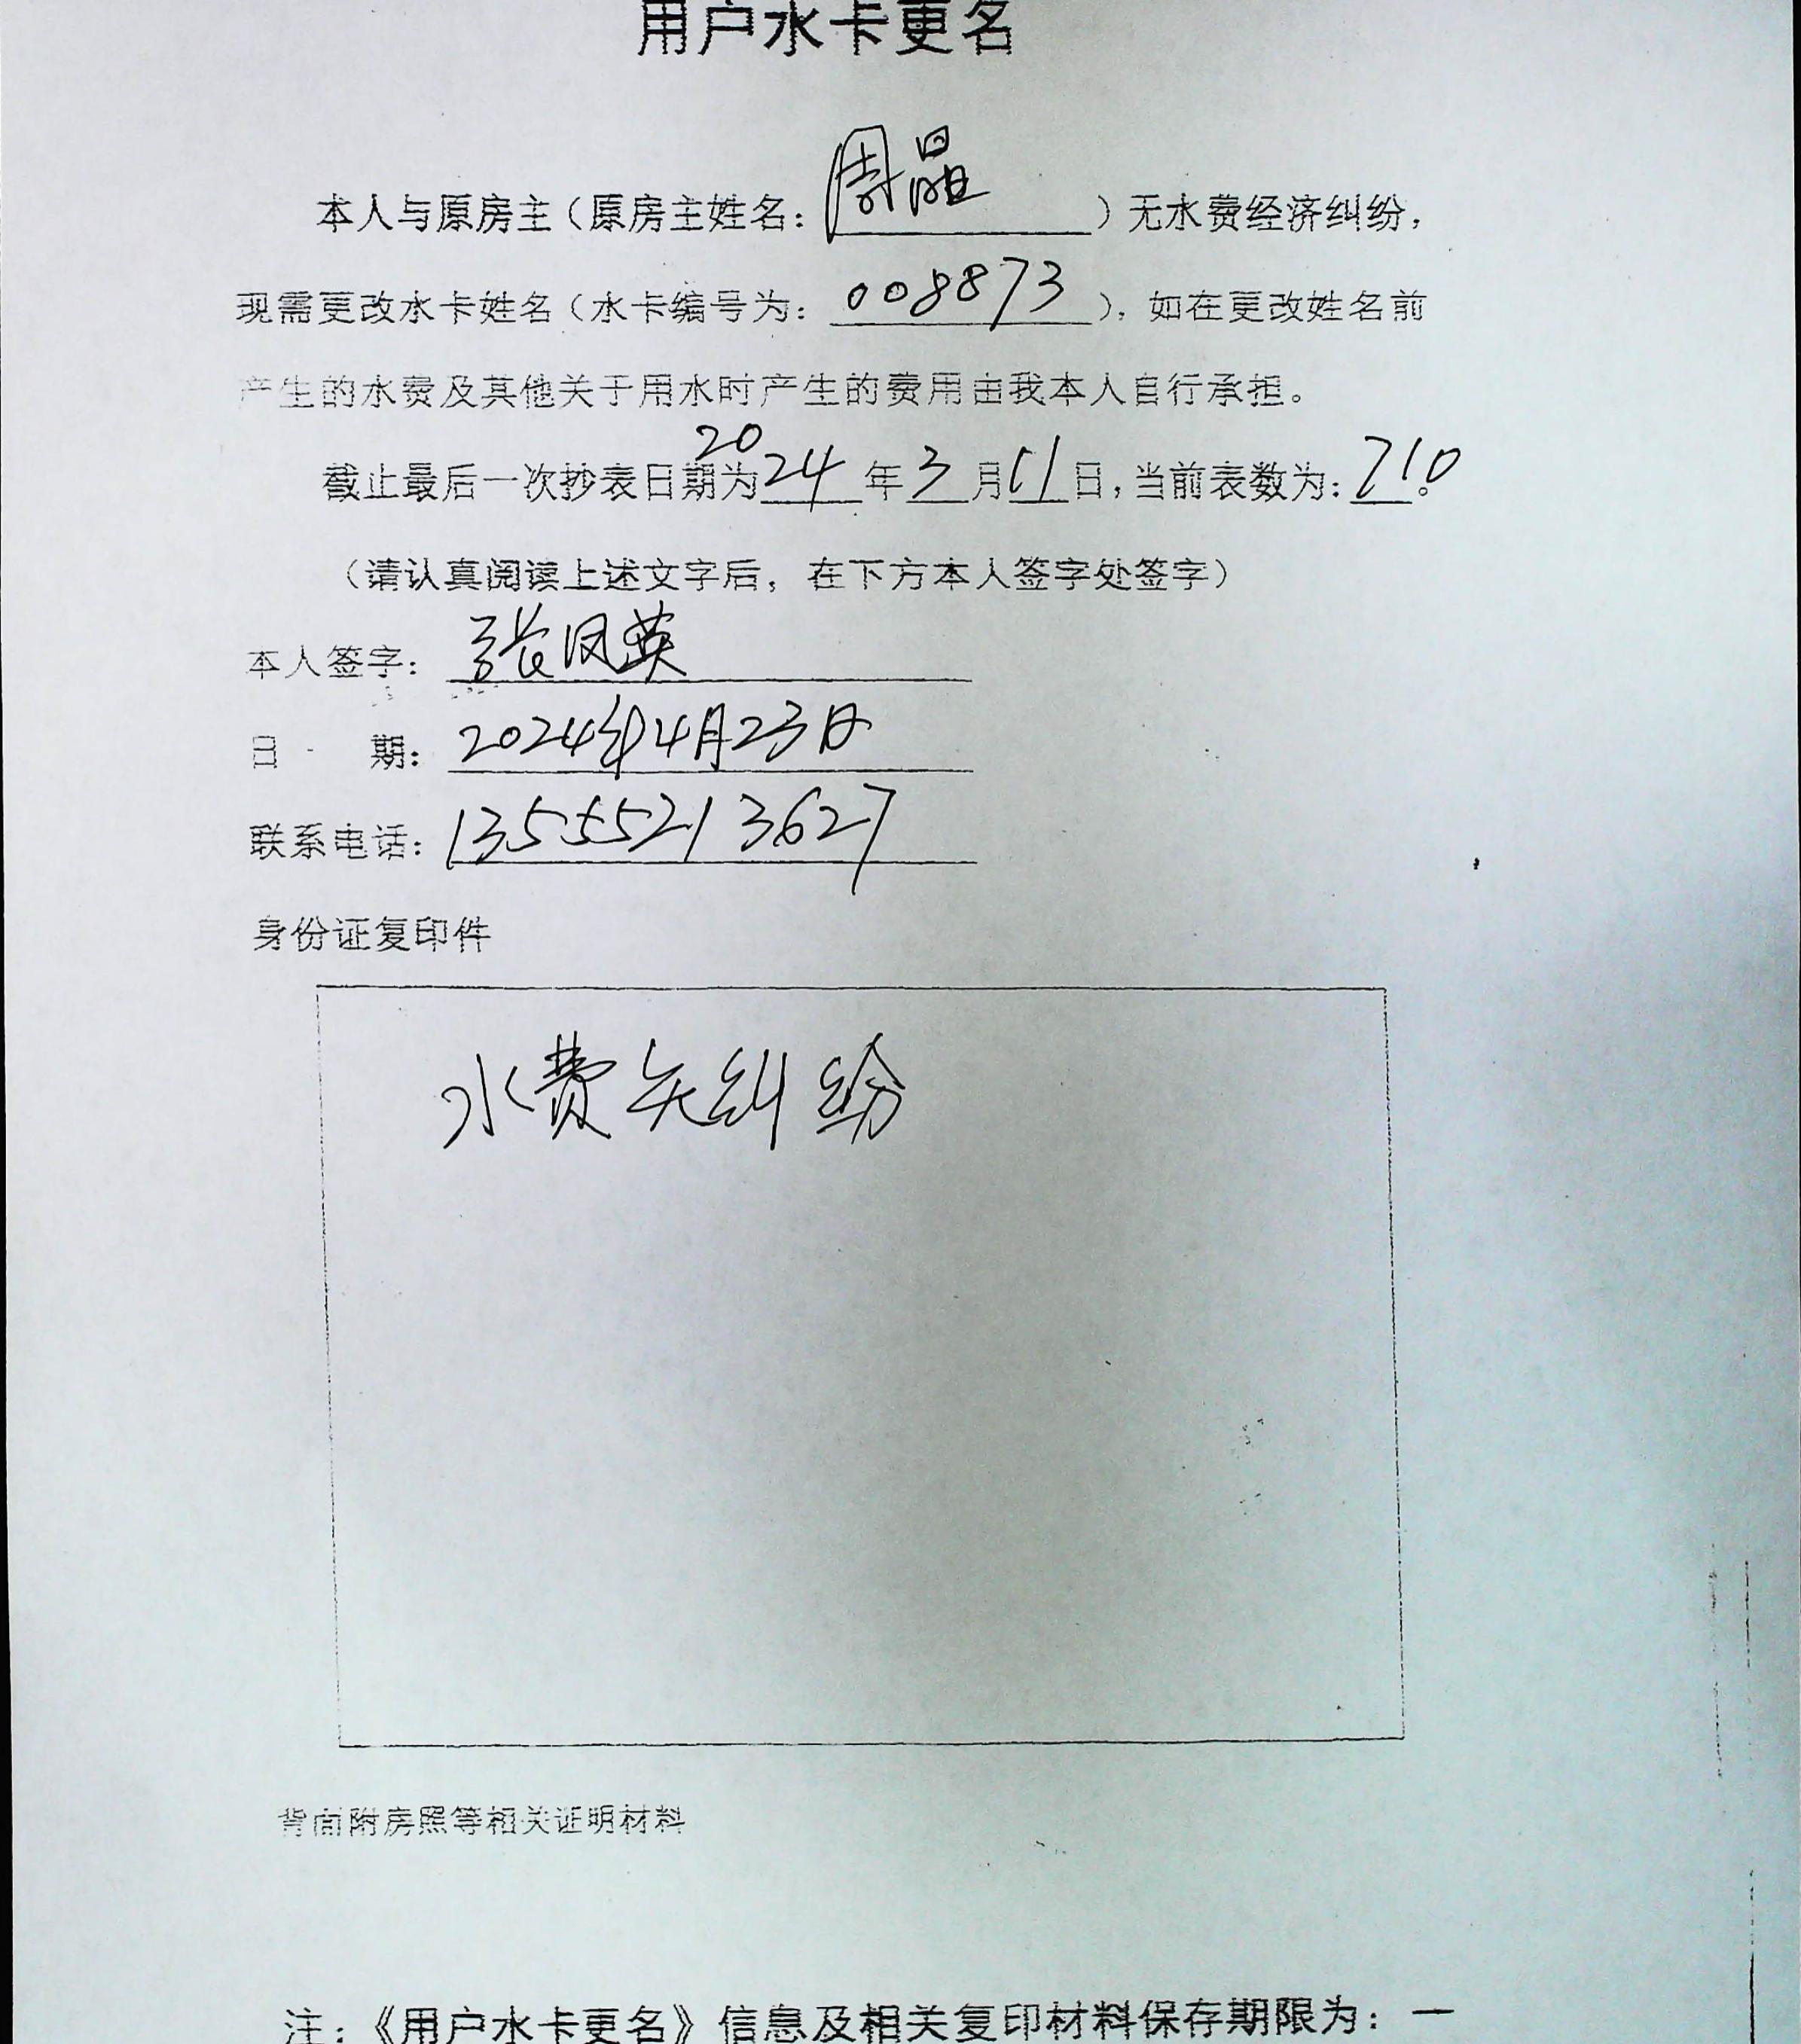 用户水卡更名
本人与原房主（原房主姓名：周晶）无水费经济纠纷，
现需更改水卡姓名（水卡编号为：008873），如在更改姓名前
产生的水费及其他关于用水时产生的费用由我本人自行承担。
截止最后一次抄表日期为2024年3月11日，当前表数为：710。
（请认真阅读上述文字后，在下方本人签字处签字）
本人签字：张凤英
日 期：2024年4月23日
联系电话：13555213627
身份证复印件
水费无纠纷
背面附房照等相关证明材料
注：《用户水卡更名》信息及相关复印材料保存期限为：一